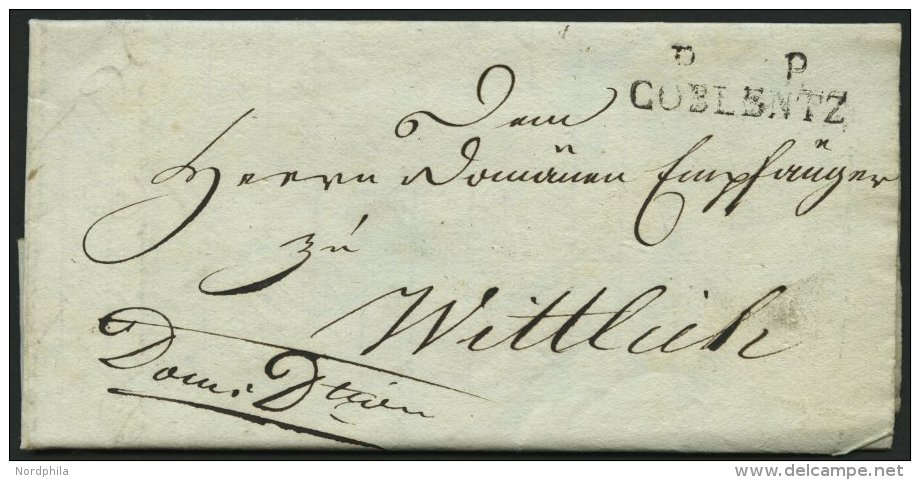 P P
COBLENTZ
Dem
Herrn Domänen Empfänger
zu
Wittlich
Dom: Dtion
Nordphila
www.delcampe.net